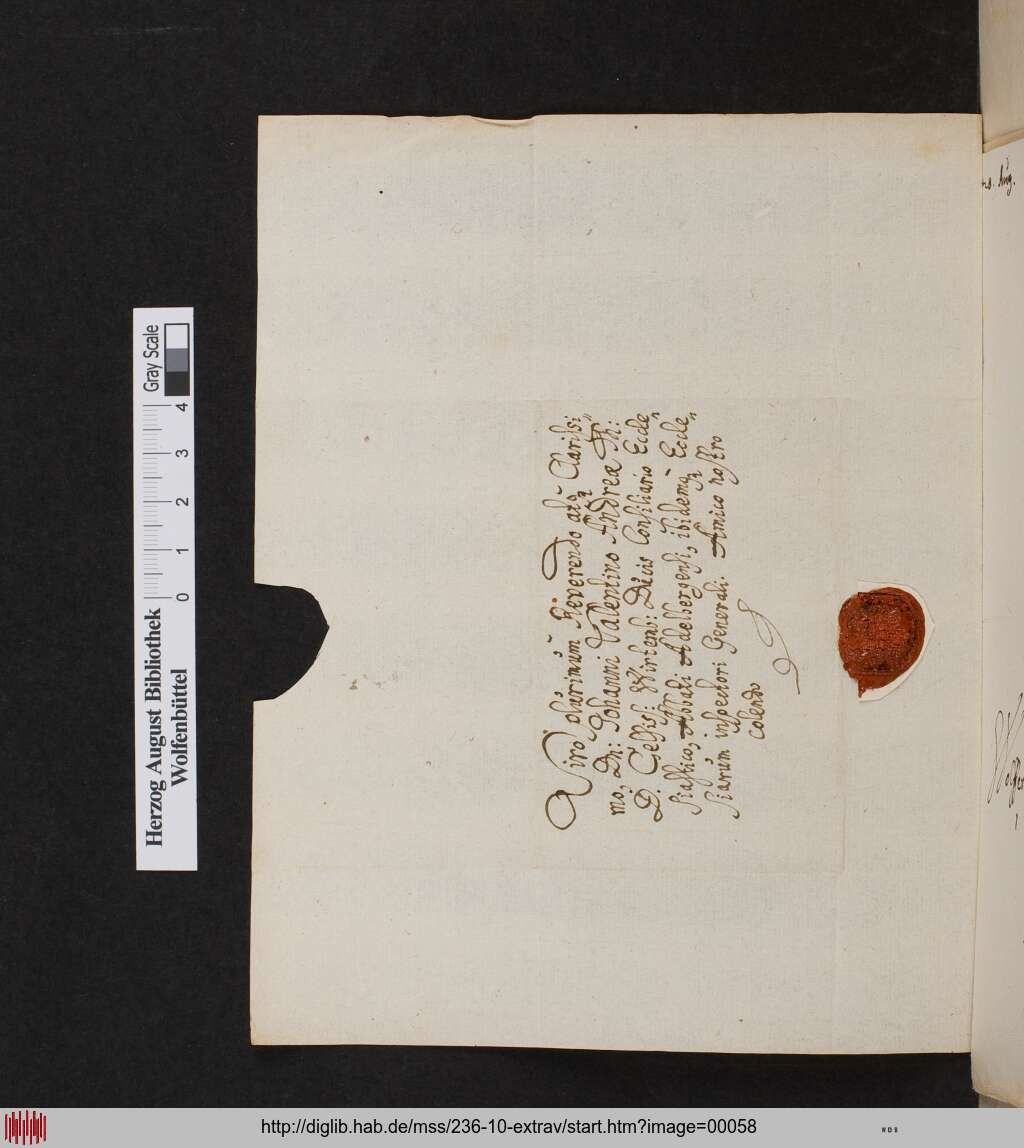 Viro plurimùm Reverendo atq; Clarissi„
mo, Dn: Johanni Valentino Andreæ Th:
D. Celsiss: Wirtemb: Ducis Consiliario Eccle„
siastico, Abbati Adelbergensi, ibidemq; Eccle„
siarùm inspectori Generali. Amico nostro
colendo
Herzog August Bibliothek
Wolfenbüttel
0 1 2 3 4
Gray Scale
http://diglib.hab.de/mss/236-10-extrav/start.htm?image=00058